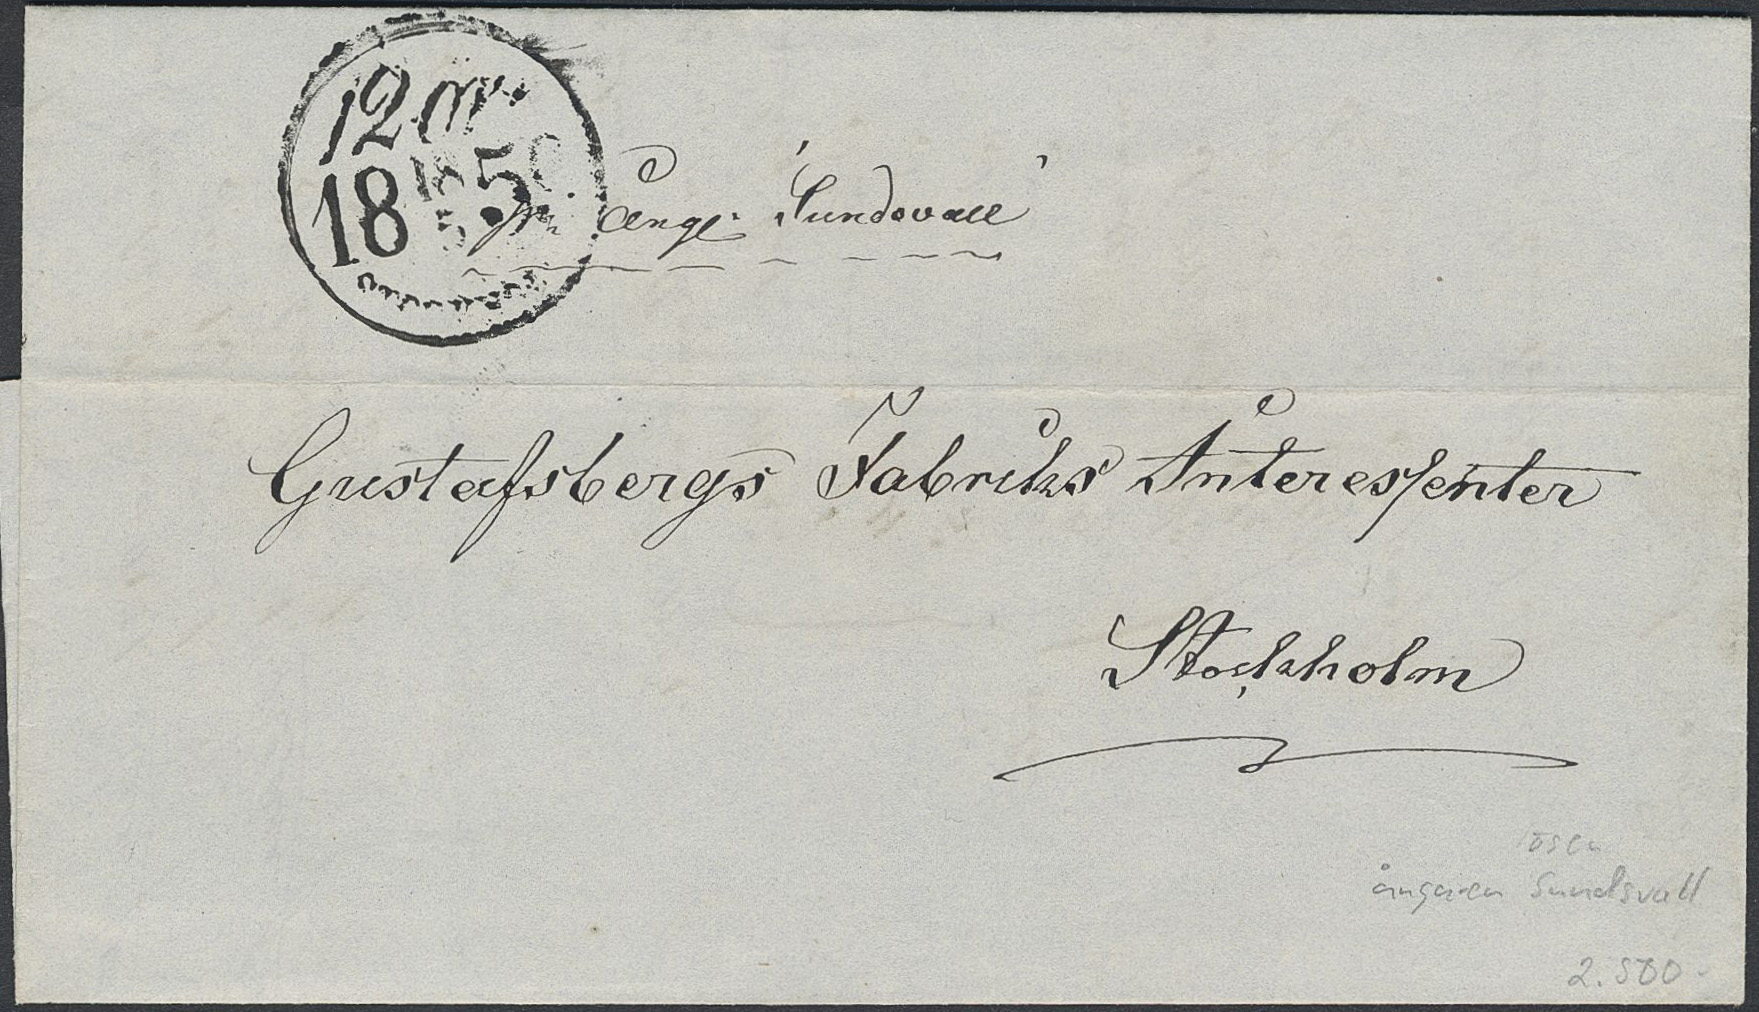 12 ör.
18 18/5 5
Ång. "Sundsvall"
Gustafsbergs Fabriks Interessenter
Stockholm
lösen
ångaren Sundsvall
2.500-